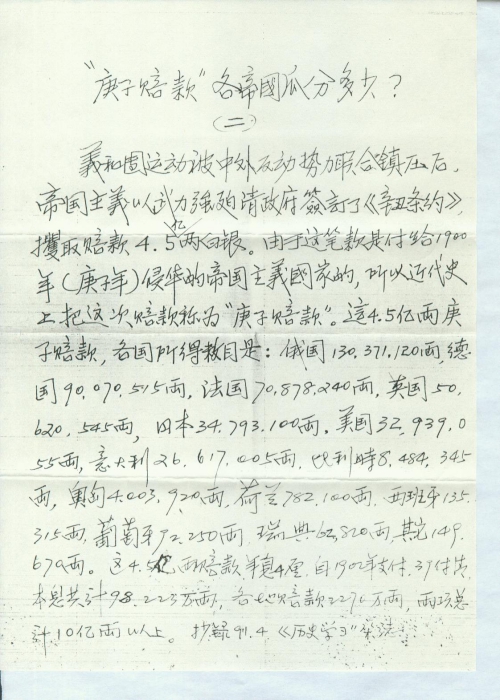 “庚子赔款”各帝國瓜分多少？
(二)
義和团运动被中外反动势力联合镇压后，
帝国主義以武力强廹清政府簽訂了《辛丑条约》，
攫取赔款4.5亿两白银。由于这笔款是付给1900
年（庚子年）侵华的帝国主義國家的，所以近代史
上把这次赔款称为“庚子赔款”。這4.5亿两庚
子赔款，各国所得数目是：俄国130.371.120两，德
国90.070.515两，法国70.878.240两，英国50.
620.545两，日本34.793.100两，美国32.939.0
55两，意大利26.617.005两，比利時8.484.345
两，奥匈4.003.920两，荷兰782.100两，西班牙135.
315两，葡萄牙92.250两，瑞典62.820两，其它149.
670两。这4.5亿两赔款，年息4厘，自1902年支付，39付清
本息共計98.223万两，各地赔款2276万两，两项总
計10亿两以上。抄録91.4《历史学习》